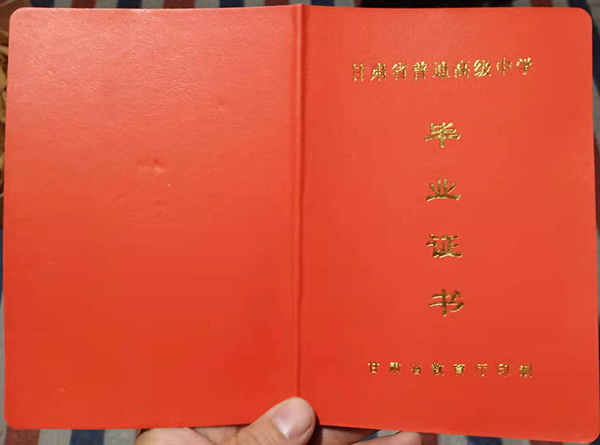 甘肃省普通高级中学
毕
业
证
书
甘肃省教育厅印制